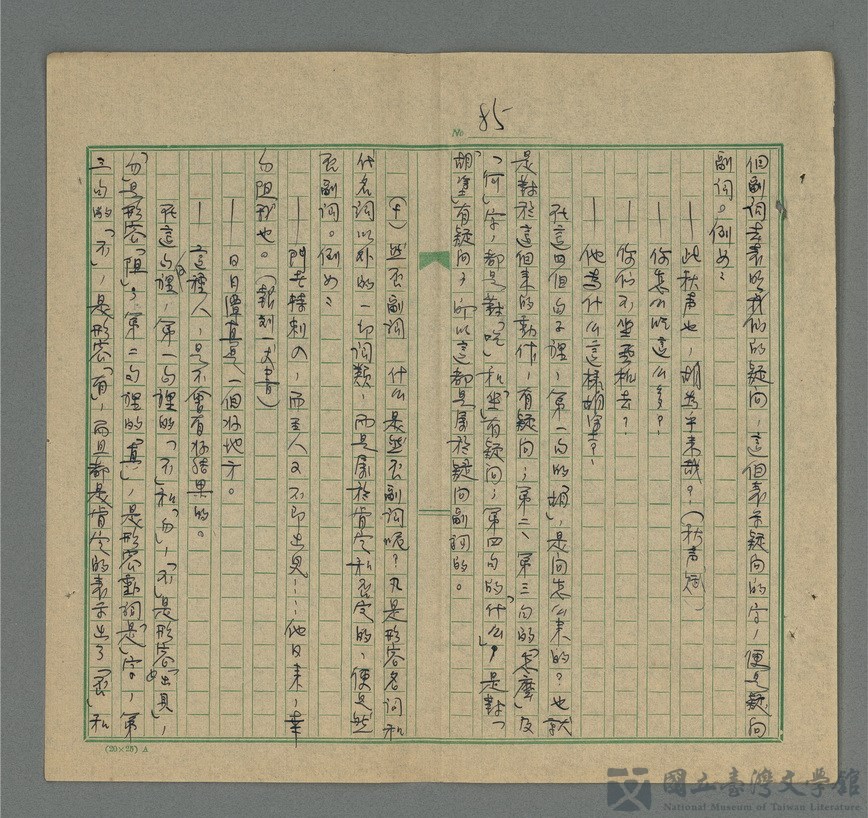 No 85
個副詞去表明我們的疑问,這個表示疑问的字,便是疑问
副词。例如:
——此秋声也,胡為乎来哉?(秋声賦)
——你怎么吃這么多?
——你们不坐飛机去?
——他為什么這樣胡塗?
在這四個句子裡,第一句的「胡」,是问怎么来的?也就
是對於這個来的動作,有疑问;第二、第三句的「怎麼」及
「何」字,都是對「吃」和「坐」有疑问;第四句的「什么」,是對「
胡塗」有疑问,所以這都是屬於疑问副詞的。
(十)然否副词 什么是然否副词呢?凡是形容名词和
代名词以外的一切词類,而是屬於肯定和否定的,便是然
否副词。例如:
——門者持刺入,而主人又不即出見……他日来,幸
勿阻我也。(報刘一丈書)
——日月潭真是一個好地方。
——這種人,是不會有好結果的。
在這句裡,第一句裡的「不」和「勿」,「不」是形容「出見」,
「勿」是形容「阻」;第二句裡的「真」,是形容動词「是」字,第
三句的「不」,是形容「有」,而且都是肯定的表示出了「否」和
(20×25) A
國立臺灣文學館
National Museum of Taiwan Literature